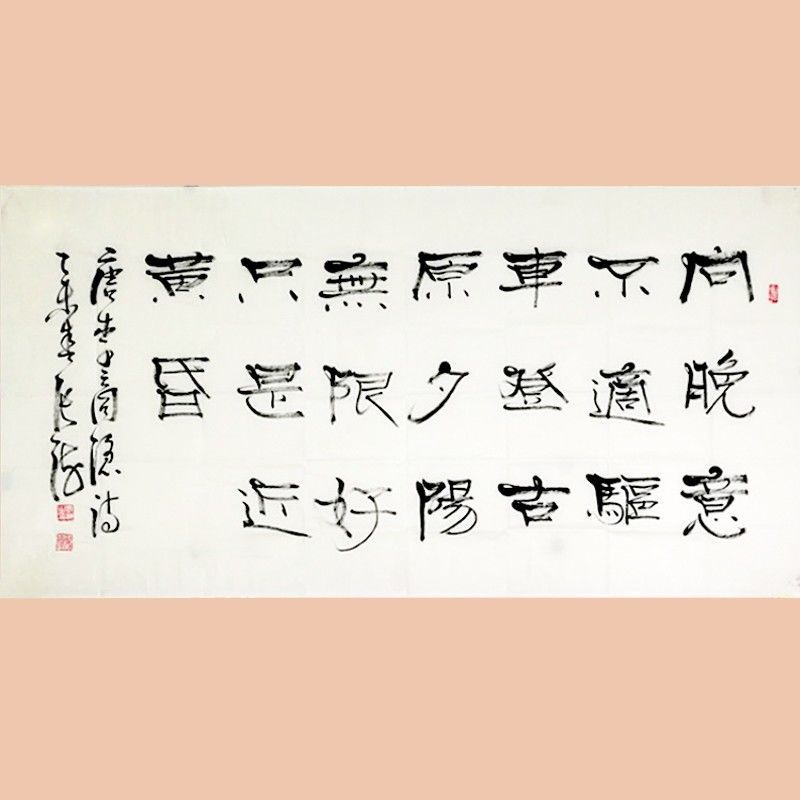 向晚意
不適驅
車登古
原夕陽
無限好
只是近
黃昏
唐李商隱詩
乙未春